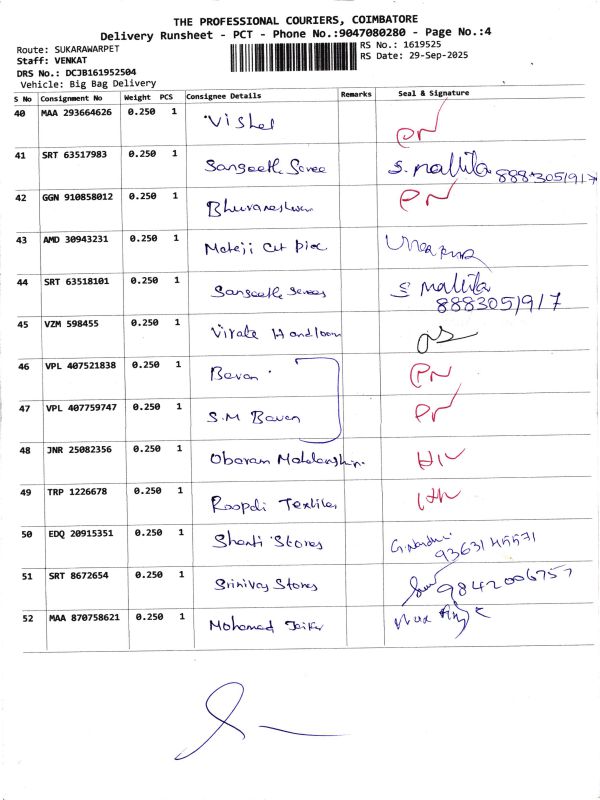 THE PROFESSIONAL COURIERS, COIMBATORE
Delivery Runsheet - PCT - Phone No.:9047080280 - Page No.:4
Route: SUKARAWARPET
RS No.: 1619525
Staff: VENKAT
RS Date: 29-Sep-2025
DRS No.: DCJB161952504
Vehicle: Big Bag Delivery
S No Consignment No Weight PCS Consignee Details Remarks Seal & Signature
40 MAA 293664626 0.250 1
41 SRT 63517983 0.250 1 Sangeeth Saree S. Mallika 8883051917
42 GGN 910858012 0.250 1 Bhuvaneshwari
43 AMD 30943231 0.250 1 Mateji Cut
44 SRT 63518101 0.250 1 Sangeeth Sarees S Mallika
8883051917
45 VZM 598455 0.250 1 Virate Handloom
46 VPL 407521838 0.250 1 Bavan
47 VPL 407759747 0.250 1 S.M Bavan
48 JNR 25082356 0.250 1
49 TRP 1226678 0.250 1 Textiles
50 EDQ 20915351 0.250 1 Shanti Stores
51 SRT 8672654 0.250 1 Srinivas Stores
52 MAA 870758621 0.250 1 Mohamed